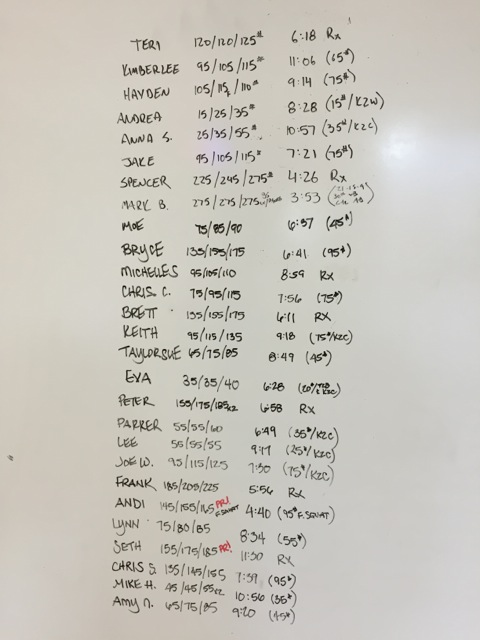 TERI 120/120/125# 6:18 Rx
KIMBERLEE 95/105/115# 11:06 (65#)
HAYDEN 105/115/110# 9:14 (75#)
ANDREA 15/25/35# 8:28 (15#/K2W)
ANNA S. 25/35/55# 10:57 (35#/K2C)
JAKE 95/105/115# 7:21 (75#)
SPENCER 225/245/275# 4:26 Rx
MARK B. 275/275/275 3:53 (21-15-9
MOE 75/85/90 6:37 (45#)
BRYCE 135/155/175 6:41 (95#)
MICHELLE S 95/105/110 8:59 RX
CHRIS C. 75/95/115 7:56 (75#)
BRETT 135/155/175 6:11 RX
KEITH 95/115/135 9:18 (75#/K2C)
TAYLORSUE 65/75/85 8:49 (45#)
EVA 35/35/40 6:28
PETER 155/175/185x2 6:58 RX
PARKER 55/55/60 6:49 (35#/K2C)
LEE 55/55/55 9:17 (25#/K2C)
JOE W. 95/115/125 7:30 (75#/K2C)
FRANK 185/205/225 5:56 RX
ANDI 145/155/165 PR! F.SQUAT 4:40 (95# F.SQUAT)
LYNN 75/80/85 8:34 (55#)
SETH 155/175/185 PR! 11:30 RX
CHRIS S. 135/145/155 7:39 (95#)
MIKE H. 45/45/55x2 10:56 (35#)
AMY N. 65/75/85 9:20 (45#)